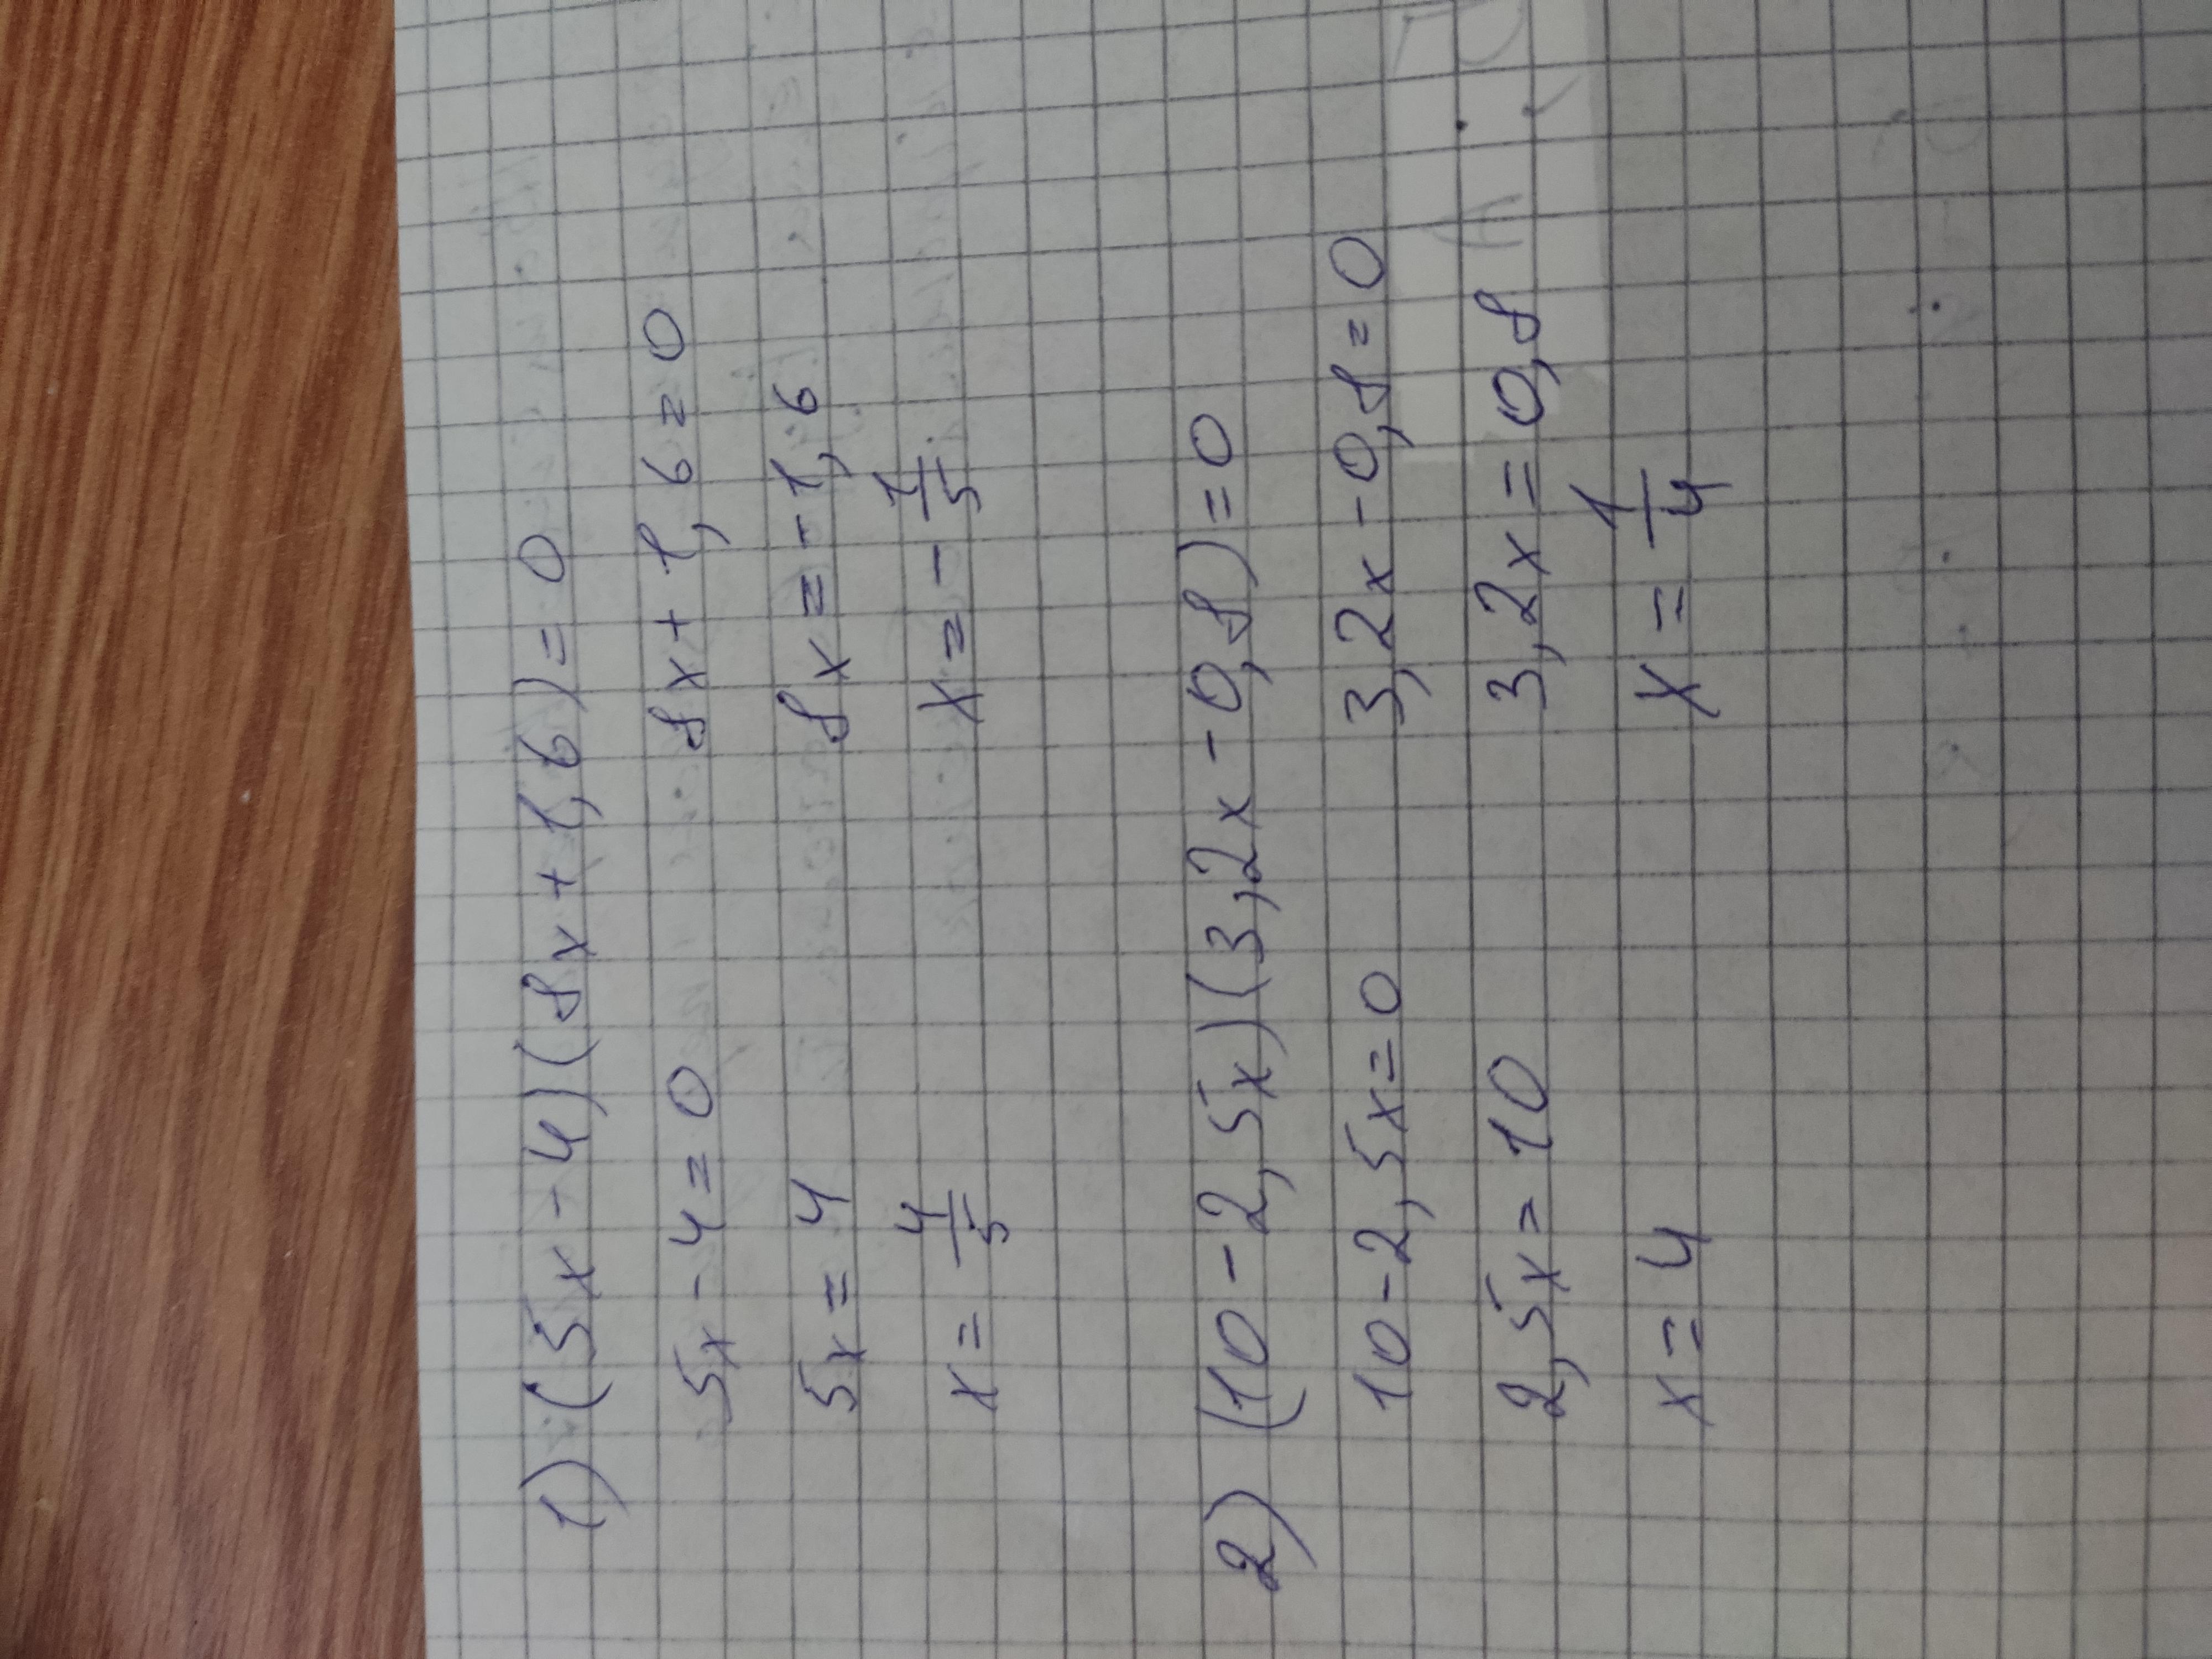 1) (5x - 4)(8x + 1,6) = 0
5x - 4 = 0 8x + 1,6 = 0
5x = 4 8x = -1,6
x = 4/5 x = - 1/5
2) (10 - 2,5x)(3,2x - 0,8) = 0
10 - 2,5x = 0 3,2x - 0,8 = 0
2,5x = 10 3,2x = 0,8
x = 4 x = 1/4